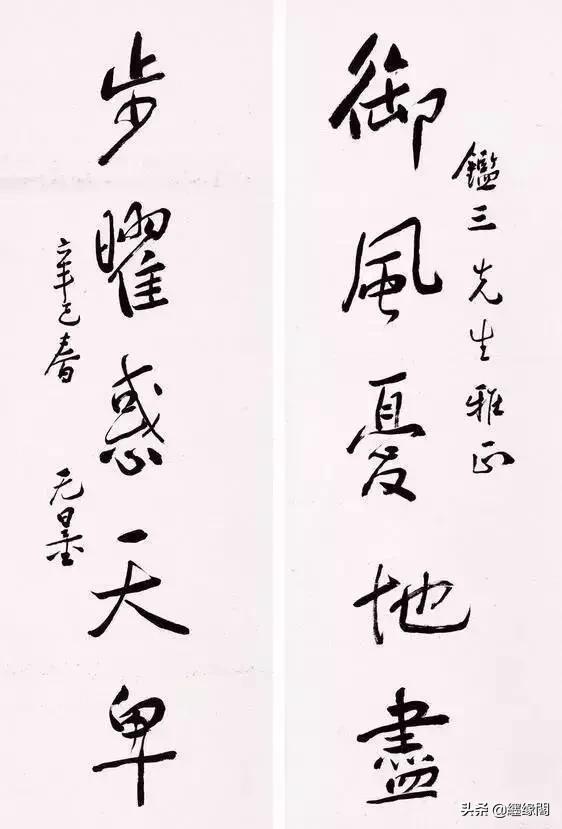 鑑三先生雅正
御風憂地盡
步曜惑天卑
辛巳春 无量
头条 @纒缘閣